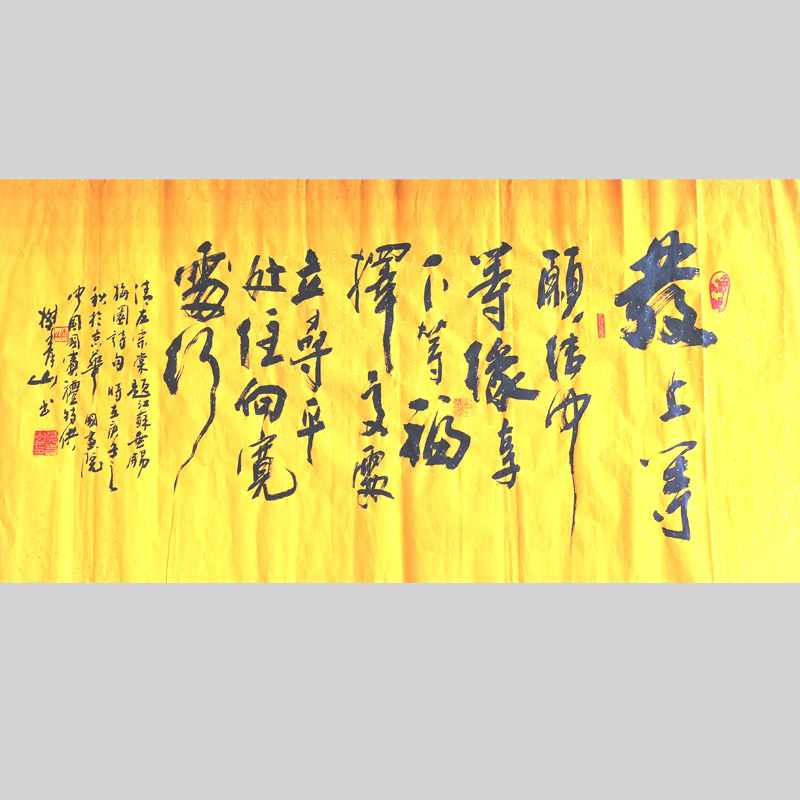 發上等
願结中
等缘享
下等福
擇高處
立尋平
处住向寬
處行
清左宗棠題江蘇無锡
梅園詩句 時在庚子之
秋於京華 國畫院
中国國賓禮特供
山书